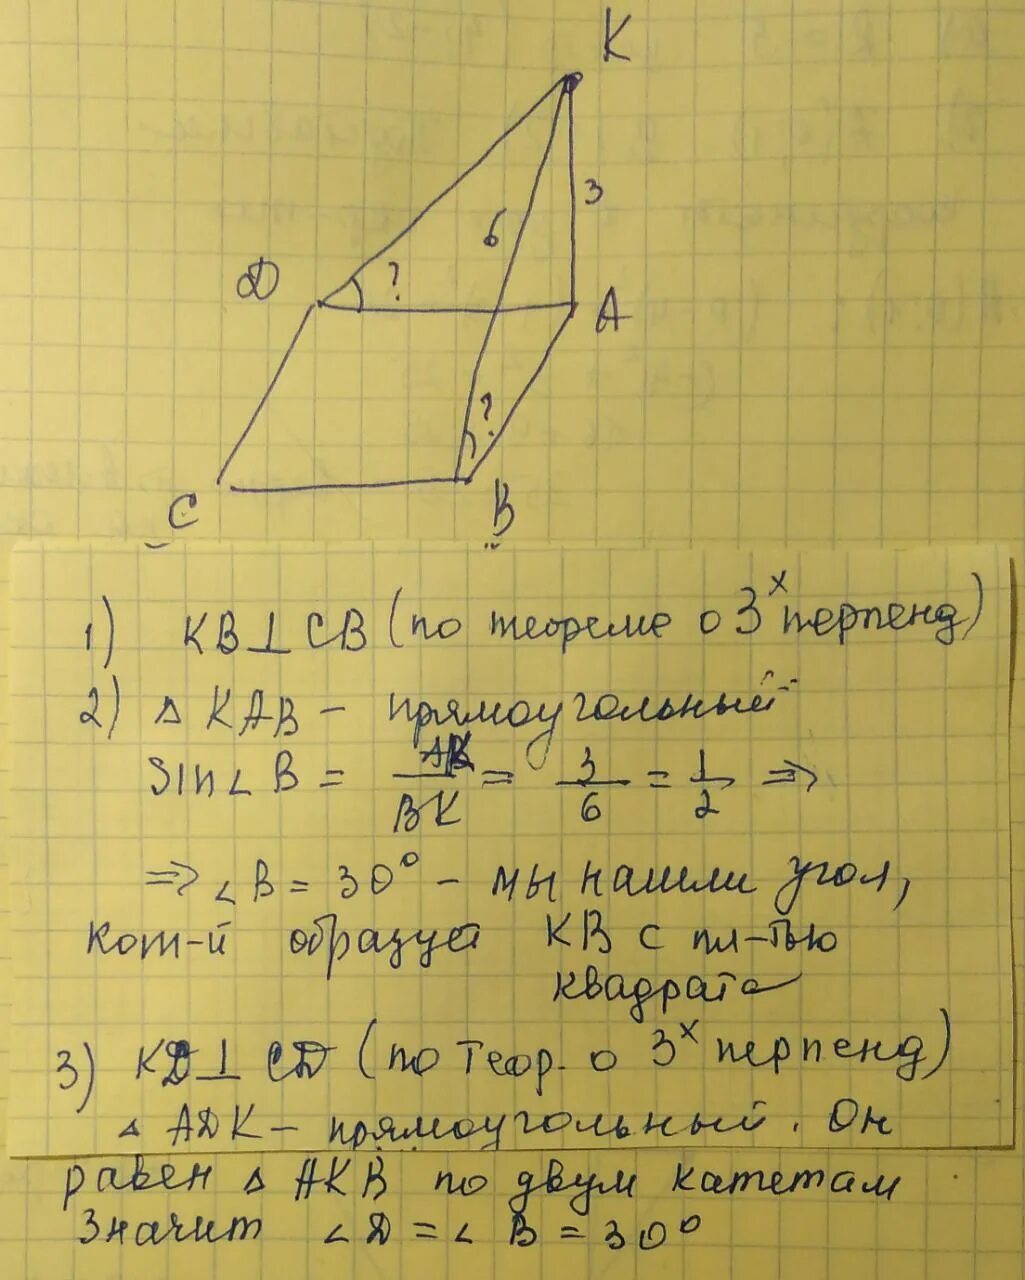 K
3
6
Д
?
A
?
C
B
1) KB⊥CB (по теореме о 3х перпенд)
2) △ KAB – прямоугольный
Sin∠B = AK/BK = 3/6 = 1/2 ⇒
⇒ ∠B = 30° – мы нашли угол,
кот-й образует KB с пл-тью
квадрата
3) KД⊥CД (по теор. о 3х перпенд)
△ АДК – прямоугольный. Он
равен △ АКВ по двум катетам
Значит ∠Д = ∠B = 30°